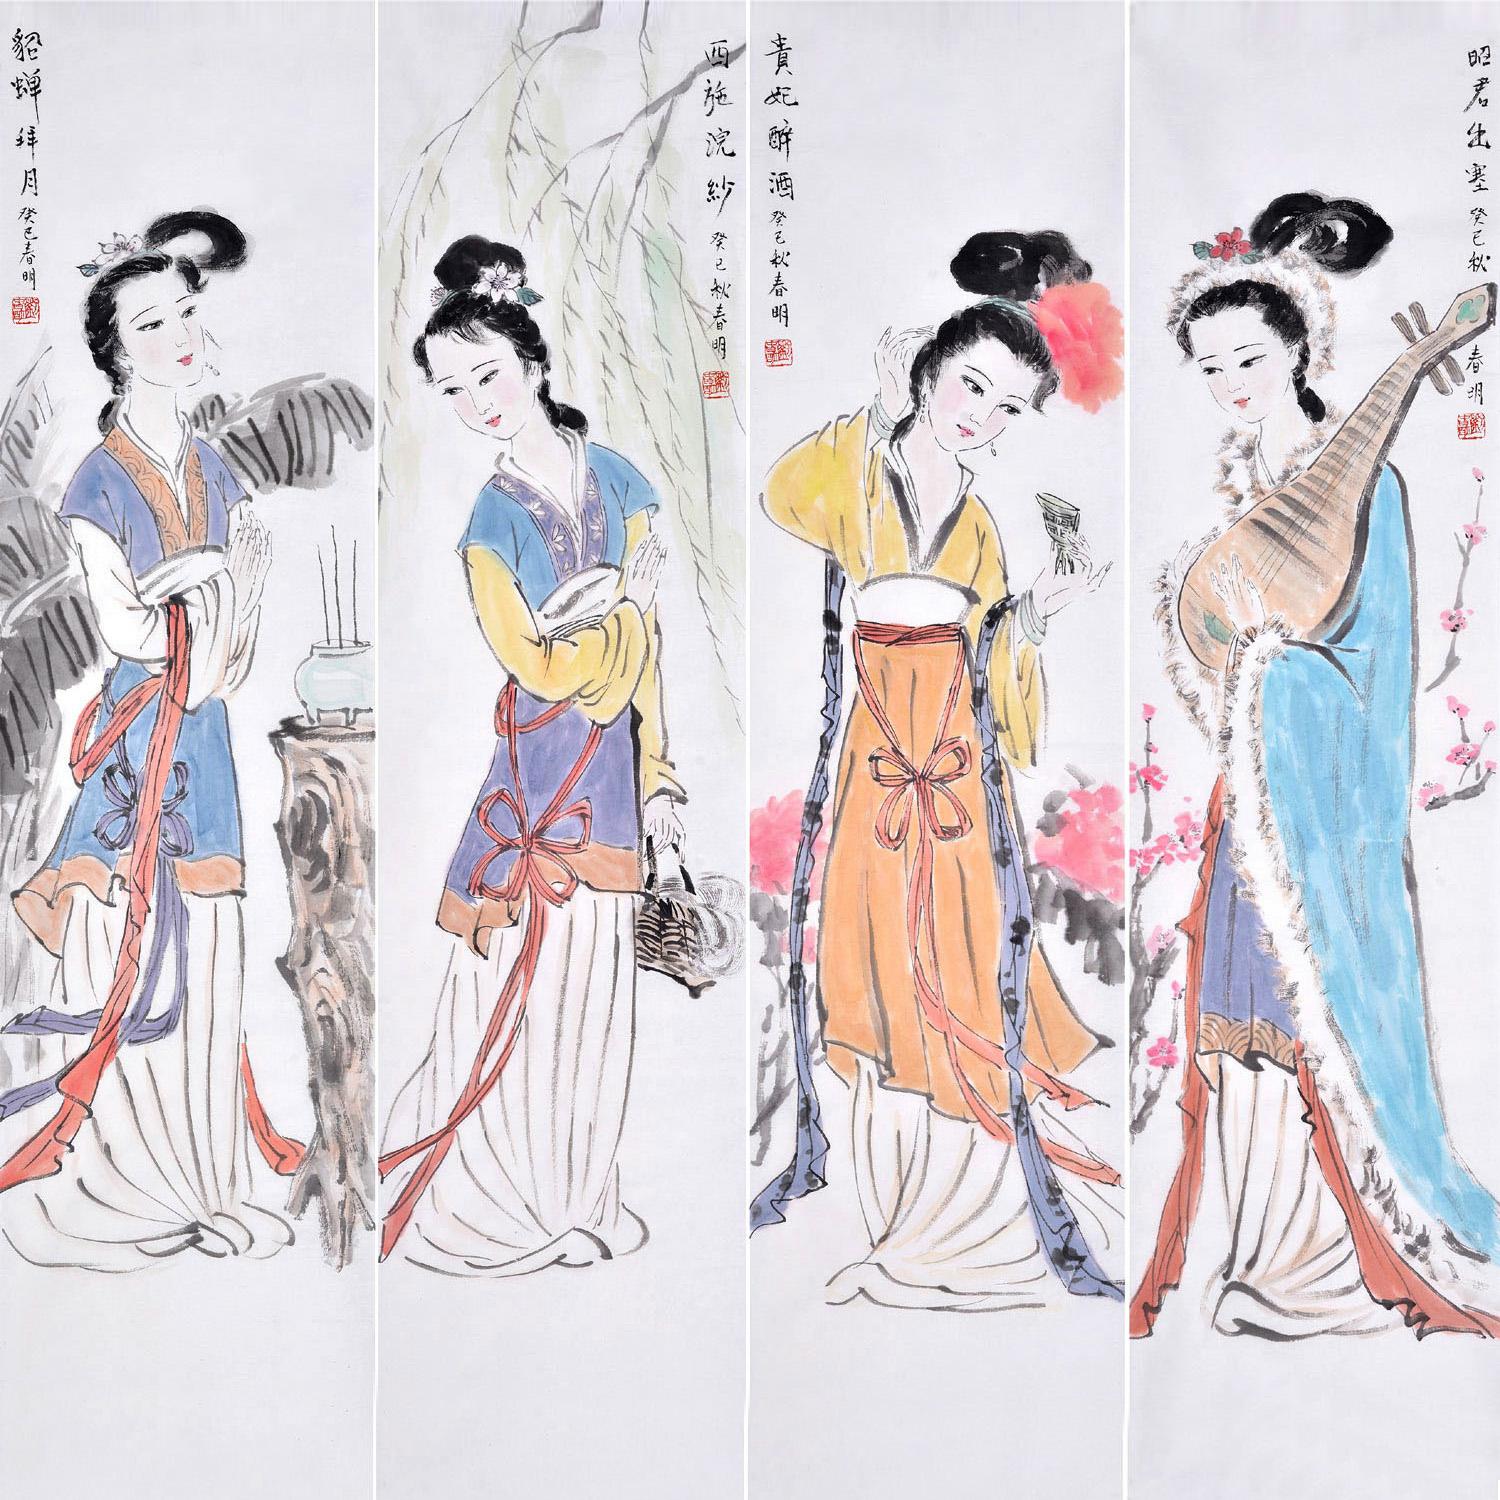 貂蝉拜月 癸巳春明
西施浣紗 癸巳秋春明
貴妃醉酒 癸巳秋春明
昭君出塞 癸巳秋春明